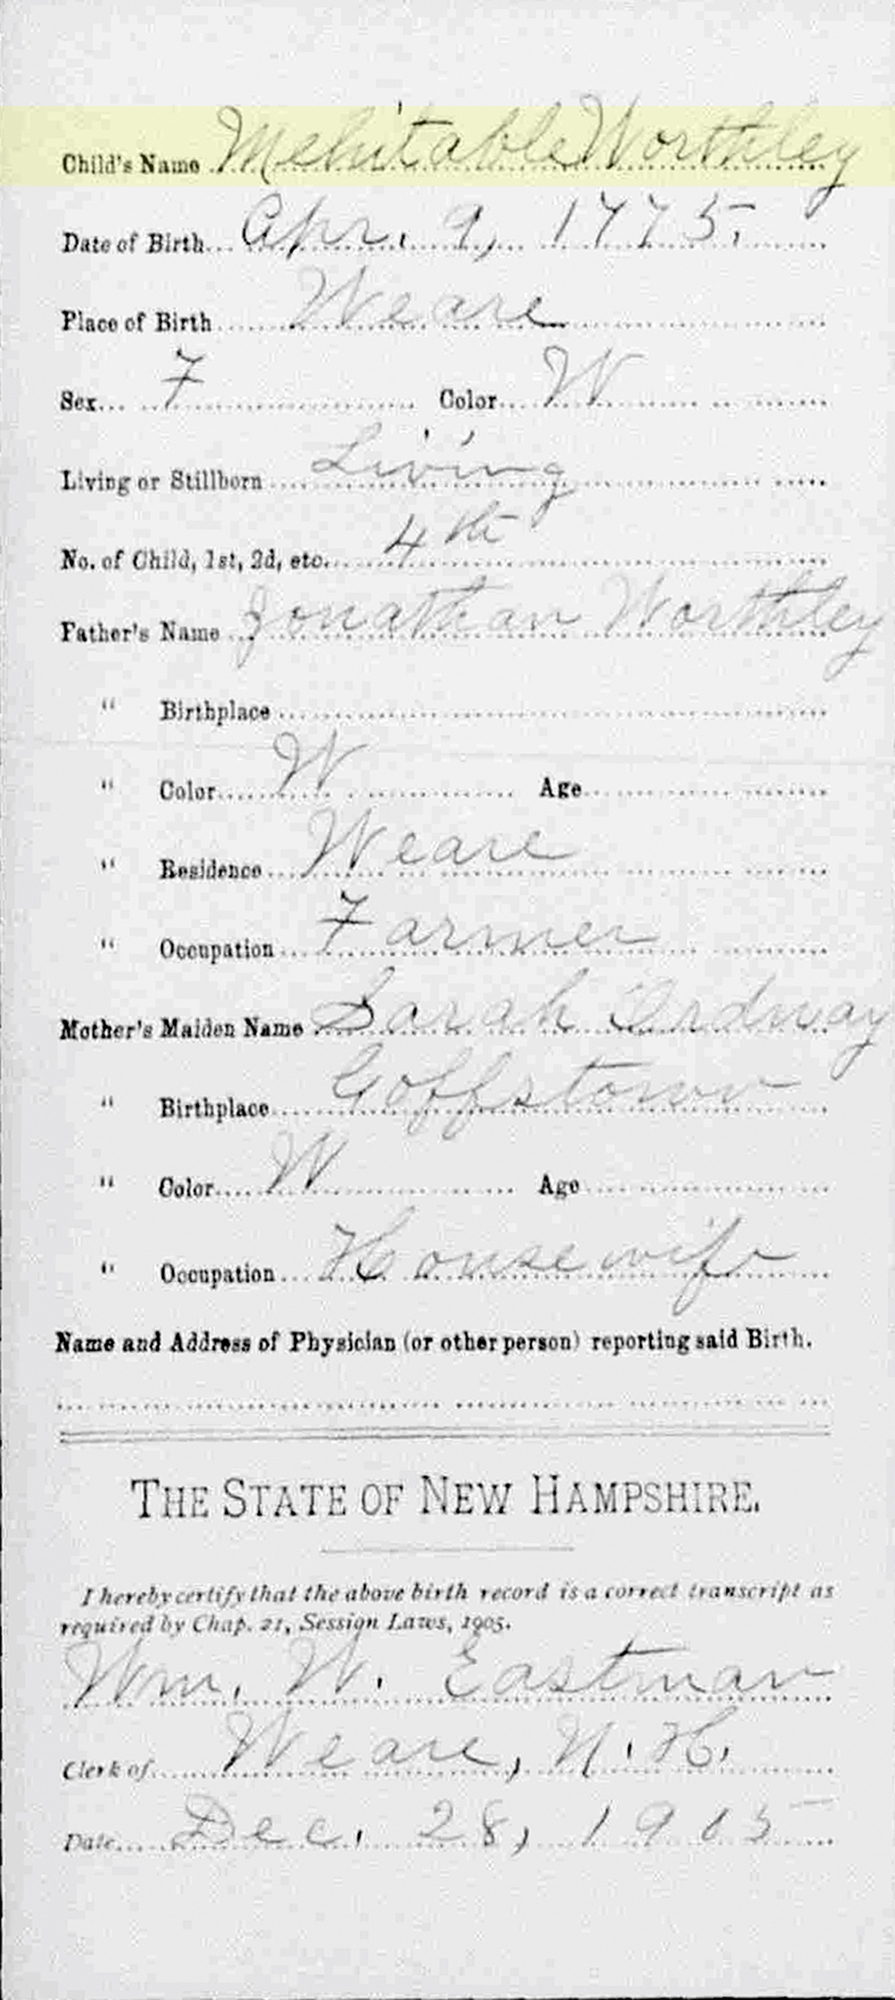 Child's Name Mehitable Worthley
Date of Birth Apr. 9, 1775.
Place of Birth Weare
Sex F Color W
Living or Stillborn Living
No. of Child, 1st, 2d, etc. 4th
Father's Name Jonathan Worthley
" Birthplace
" Color W Age
" Residence Weare
" Occupation Farmer
Mother's Maiden Name Sarah Ordway
" Birthplace Goffstown
" Color W Age
" Occupation Housewife
Name and Address of Physician (or other person) reporting said Birth.
THE STATE OF NEW HAMPSHIRE.
I hereby certify that the above birth record is a correct transcript as
required by Chap. 21, Session Laws, 1905.
Wm. W. Eastman
Clerk of Weare, N. H.
Date Dec. 28, 1905